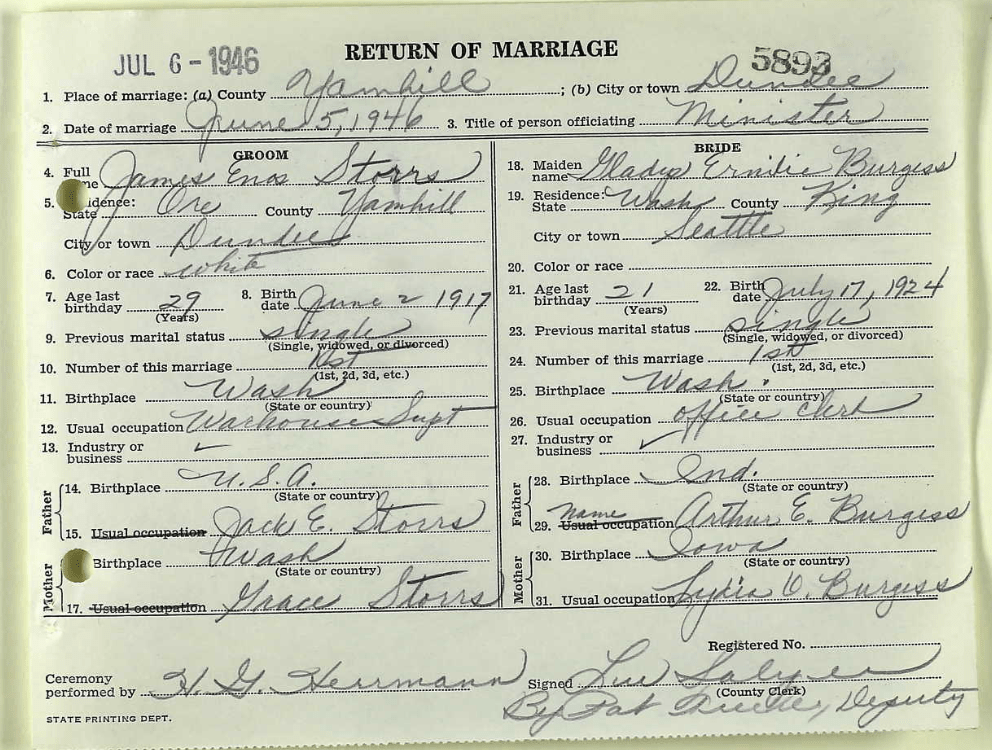 JUL 6 - 1946
RETURN OF MARRIAGE
5893
1. Place of marriage: (a) County Yamhill ; (b) City or town Dundee
2. Date of marriage June 5, 1946 3. Title of person officiating Minister
GROOM
4. Full name James Enos Storrs
5. Residence: State Ore County Yamhill
City or town Dundee
6. Color or race white
7. Age last birthday 29 (Years) 8. Birth date June 2 1917
9. Previous marital status single
(Single, widowed, or divorced)
10. Number of this marriage 1st
(1st, 2d, 3d, etc.)
11. Birthplace Wash
(State or country)
12. Usual occupation Warhouse Supt
13. Industry or business ✓
Father
14. Birthplace U.S.A.
(State or country)
15. Usual occupation Jack E. Storrs
Mother
Birthplace Wash
(State or country)
17. Usual occupation Grace Storrs
BRIDE
18. Maiden name Gladys Emilie Burgess
19. Residence: State Wash County King
City or town Seattle
20. Color or race
21. Age last birthday 21 (Years) 22. Birth date July 17, 1924
23. Previous marital status single
(Single, widowed, or divorced)
24. Number of this marriage 1st
(1st, 2d, 3d, etc.)
25. Birthplace Wash.
(State or country)
26. Usual occupation office clerk
27. Industry or business ✓
Father
28. Birthplace Ind.
(State or country)
name
29. Usual occupation Arthur E. Burgess
Mother
30. Birthplace Iowa
(State or country)
31. Usual occupation Lydia O. Burgess
Registered No.
Ceremony performed by H. G. Herrmann
Signed Salyer
(County Clerk)
By Pat Deputy
STATE PRINTING DEPT.